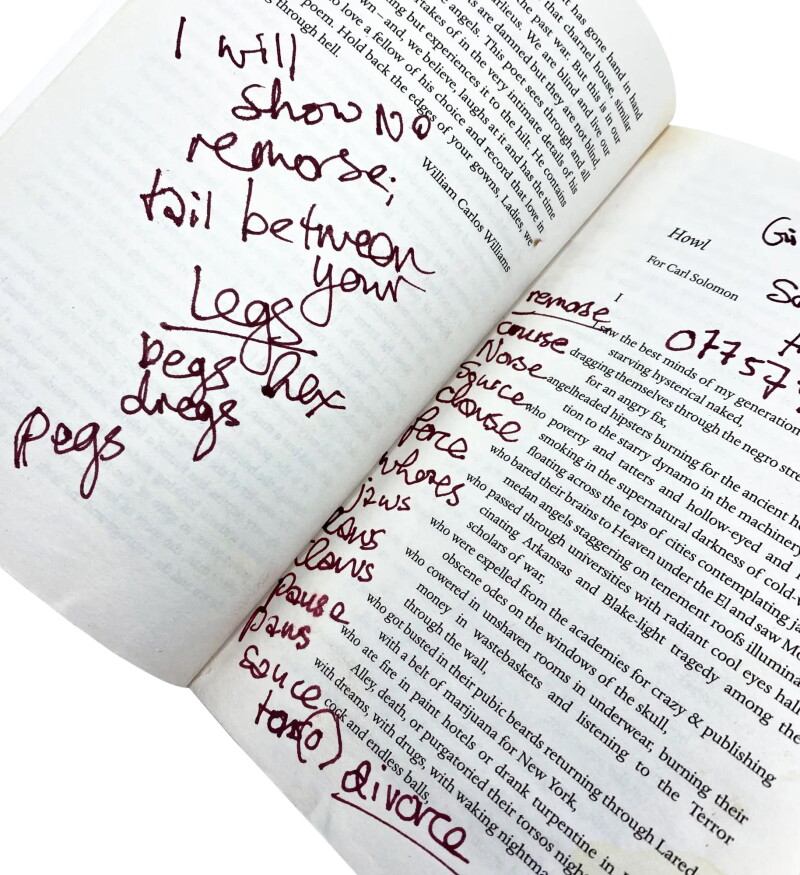 t has gone hand in hand
that charnel house, similar
the past war. But this is in our
We are blind and live our
are damned but they are not blind,
angels. This poet sees through and all
takes of in the very intimate details of his
ing but experiences it to the hilt. He contains
own—and, we believe, laughs at it and has the time
to love a fellow of his choice and record that love in
poem.
Hold back the edges of your gowns, Ladies, we
ng through hell.
William Carlos Williams
I will
show No
remorse;
tail between
your
Legs
begs hex
dregs
Pegs
Howl
For Carl Solomon
I
I saw the best minds of my generation
starving hysterical naked,
dragging themselves through the negro stre
for an angry fix,
angelheaded hipsters burning for the ancient h
tion to the starry dynamo in the machinery
who poverty and tatters and hollow-eyed and
smoking in the supernatural darkness of cold-
floating across the tops of cities contemplating ja
who bared their brains to Heaven under the El and saw Mo
medan angels staggering on tenement roofs illumina
who passed through universities with radiant cool eyes hall
cinating Arkansas and Blake-light tragedy among the
scholars of war,
who were expelled from the academies for crazy & publishing
obscene odes on the windows of the skull,
who cowered in unshaven rooms in underwear, burning their
money in wastebaskets and listening to the Terror
through the wall,
who got busted in their pubic beards returning through Lared
with a belt of marijuana for New York,
who ate fire in paint hotels or drank turpentine in
Alley, death, or purgatoried their torsos night
with dreams, with drugs, with waking nightma
cock and endless balls,
remose
course
Noise
source
clause
force
whores
jaws
laws
claws
pause
paws
sauce
tors(o)
divorce
Gi
So
07757